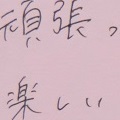 頑張っ
楽しい